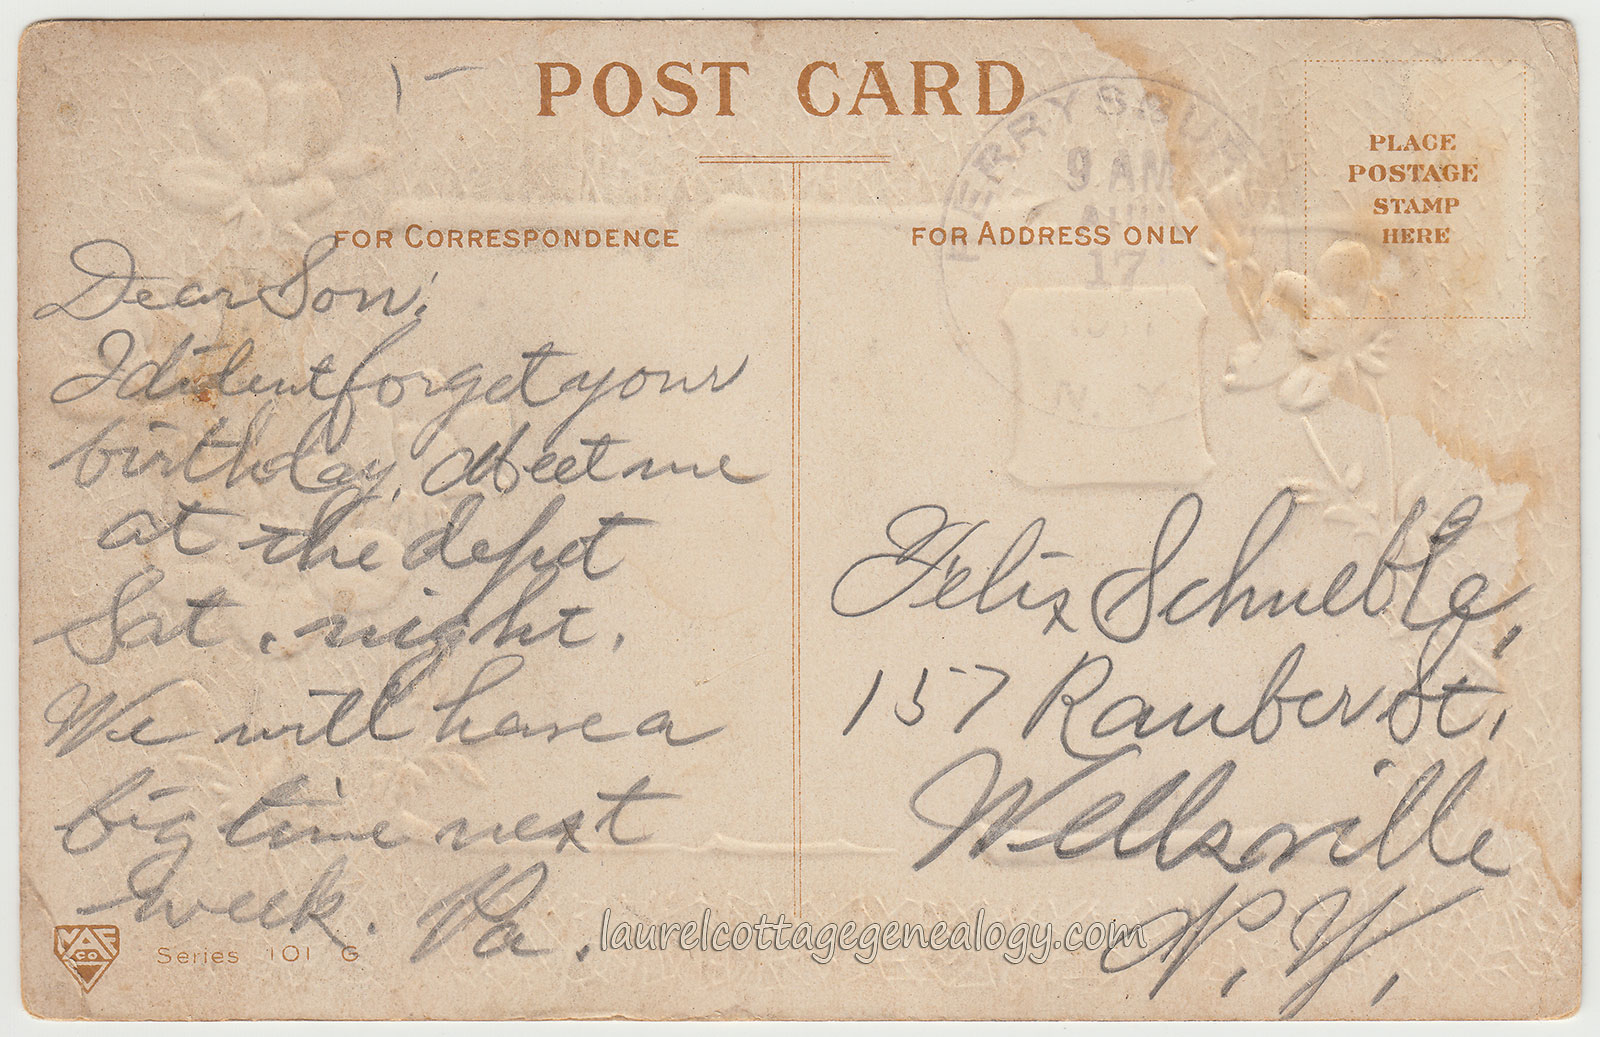 1-
POST CARD
PERRYSBURG
9 AM
AUG
17
N.Y.
PLACE
POSTAGE
STAMP
HERE
FOR CORRESPONDENCE
Dear Son:
I dident forget your
birthday. Meet me
at the depot
Sat. night.
We will have a
big time next
week. Pa.
FOR ADDRESS ONLY
Felix Schueble,
157 Rauber St.,
Wellsville
N.Y.
MAF
CO
Series 101 G
laurelcottagegenealogy.com